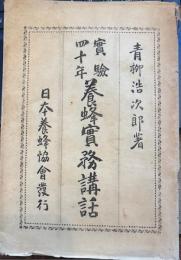 青柳浩次郎著
實驗四十年
養蜂實務講話
日本養蜂協會發行